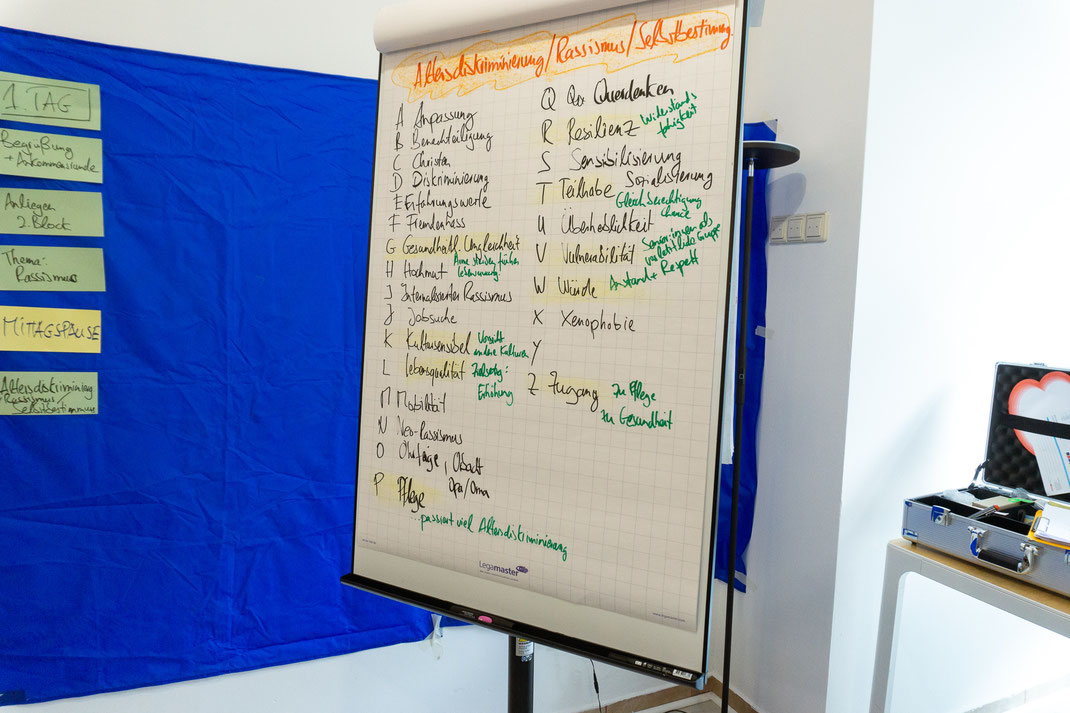 1. TAG
Begrüßung
+ Ankommensrunde
Anliegen
2. Block
Thema:
Rassismus
MITTAGSPAUSE
Altersdiskriminierung
Rassismus
Selbstbestimmung
Altersdiskriminierung/Rassismus/Selbstbestimmung
A Anpassung
B Benachteiligung
C Christen
D Diskriminierung
E Erfahrungswerte
F Fremdenhass
G Gesundheitl. Ungleichheit
Arme sterben früher
H Hochmut
I Internalisierter Rassismus
J Jobsuche
K Kultursensibel
Vorsicht
andere Kulturen
L Lebensqualität
Zielsetzg:
Erhöhung
M Mobilität
N Neo-Rassismus
O Ohrfeige, Obacht
Opa/Oma
P Pflege
...passiert viel Altersdiskriminierung
Q Querdenken
R Resilienz
Widerstands
fähigkeit
S Sensibilisierung
Sozialisierung
T Teilhabe
Gleichberechtigung
Chance
U Überheblichkeit
V Vulnerabilität
Senior:innen als
W Würde
Anstand + Respekt
X Xenophobie
Y
Z Zugang
zu Pflege
zu Gesundheit
Legamaster